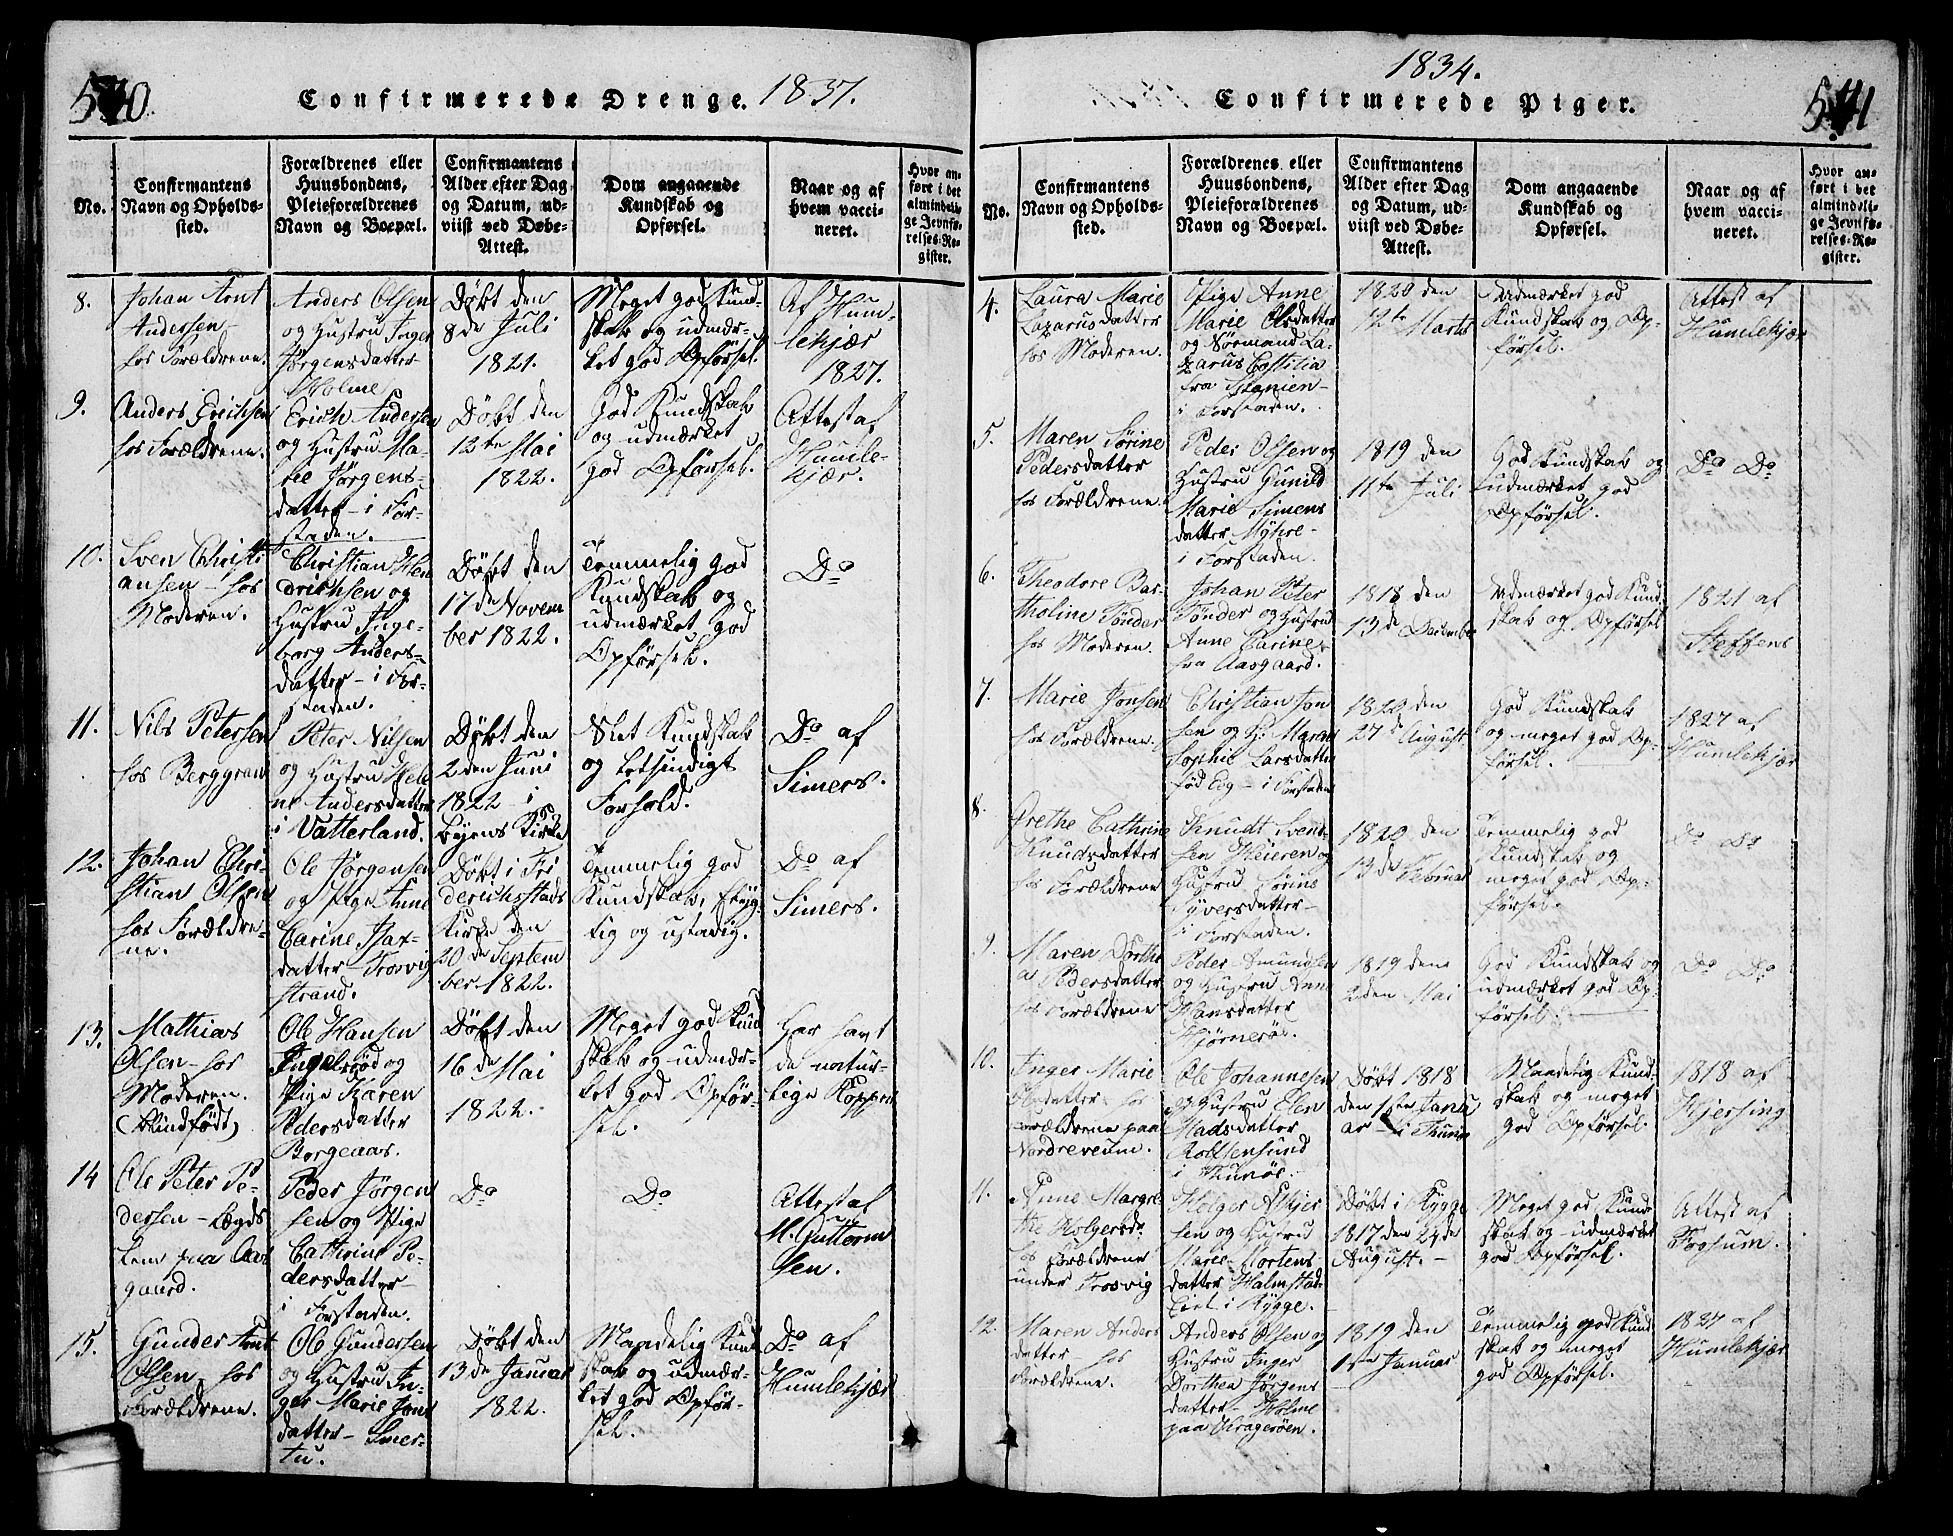 540
Confirmerede Drenge. 1837.
No.
Confirmantens
Navn og Opholds-
sted.
Forældrenes eller
Huusbondens,
Pleieforældrenes
Navn og Boepæl.
Confirmantens
Alder efter Dag
og Datum, ud-
viist ved Døbe-
Attest.
Dom angaaende
Kundskab og
Opførsel.
Naar og af
hvem vacci-
neret.
Hvor an-
ført i det
almindeli-
ge Jevnfø-
relses-Re-
gister.
8.
Johan Arnt
Andersen
hos Forældrene.
Anders Olsen
og Hustru Inger
Jørgensdatter
Holme
Døbt den
8de Juli
1821.
Meget god Kund-
skab og udmær-
ket god Opførsel.
Af Hum-
lekjær
1827.
9.
Anders Erichsen
hos Forældrene.
Erich Andersen
og Hustru Ma-
rie Jørgens-
datter - i For-
staden.
Døbt den
12te Mai
1822.
God Kundskab
og udmærket
god Opførsel.
Attest af
Humle-
kjær.
10.
Sven Christi
ansen - hos
Moderen.
Christian Hen
drichsen og
Hustru Inge-
borg Anders-
datter - i For-
staden.
Døbt den
17de Novem
ber 1822.
Temmelig god
Kundskab og
udmærket god
Opførsel.
Do
11.
Nils Petersen
hos Berggran
Peter Nilsen
og Hustru Hele
ne Andersdatter
i Vatterland.
Døbt den
2den Juni
1822 - i
Byens Kirke
Slet Kundskab
og letsindigt
Forhold.
Do af
Simers.
12.
Johan Chri-
stian Olsen
hos Forældre-
ne.
Ole Jørgensen
og Pige Anne
Carine Isax-
datter Trosvig
strand.
Døbt i Fri
derichsstads
Kirke den
30de Septem
ber 1822.
Temmelig god
Kundskab, flyg-
tig og ustadig.
Do af
Simers.
13.
Mathias
Olsen - hos
Moderen.
(blindfødt)
Ole Hansen
Ingelsrød og
Pige Karen
Pedersdatter
Borgeaas.
Døbt den
16de Mai
1822.
Meget god Kund
skab og udmær-
ket god Opfør-
sel.
Har havt
de natur-
lige Kopper
14
Ole Peter Pe-
dersen - Lægds
lem paa Aas
gaard.
Peder Jørgen
sen og Pige
Cathrine Pe-
dersdatter
i Forstaden.
Do
Do
Attest af
M. Guttorm
sen.
15.
Gunder Arnt
Olsen - hos
Forældrene.
Ole Gundersen
og Hustru In-
ger Marie Jons
datter - Smer-
tu.
Døbt den
13de Januar
1822.
Maadelig Kund
skab og udmær-
ket god Opfør-
sel.
Do af
Humlekjær
1834.
541
Confirmerede Piger.
No.
Confirmantens
Navn og Opholds-
sted.
Forældrenes eller
Huusbondens,
Pleieforældrenes
Navn og Boepæl.
Confirmantens
Alder efter Dag
og Datum, ud-
viist ved Døbe-
Attest.
Dom angaaende
Kundskab og
Opførsel.
Naar og af
hvem vacci-
neret.
Hvor an-
ført i det
almindeli-
ge Jevnfø-
relses-Re-
gister.
4.
Laura Marie
Lazarusdatter
hos Moderen.
Pige Anne
Marie Olsdatter
og Sømand La-
zarus
fra Spanien -
i Forstaden.
1820 den
12te Marts
Udmærket god
Kundskab og Op-
førsel.
Attest af
Humlekjær
5.
Maren Sørine
Pedersdatter
hos Forældrene.
Peder Olsen og
Hustru Gunild
Marie Simens
datter Myhre -
i Forstaden.
1819 den
11te Juli
God Kundskab og
udmærket god
Opførsel.
Do Do
6.
Theodore Bar-
tholine Tønder
hos Moderen.
Johan Peter
Tønder og Hustru
Anne Carine
fra Aasgaard.
1818 den
13de December
Udmærket god Kund-
skab og Opførsel
1821 af
Steffens
7.
Marie Jonsen
hos Forældrene.
Christian Jon
sen og H. Maren
Sophie Larsdatter
fød Eeg - i Forstaden
1820 den
27d August
God Kundskab
og meget god Op-
førsel.
1827 af
Humlekjær
8.
Grethe Cathrine
Knudsdatter
hos Forældrene
Knudt Svend-
sen Heieren og
Hustru Sørine
Syversdatter -
i Forstaden.
1820 den
13de Februar
Temmelig god
Kundskab og
meget god Op-
førsel.
Do Do
9.
Maren Dorthe
a Pedersdatter
hos Forældrene
Peder Amundsen
og Hustru Anne
Hansdatter
Hjørnerød.
1819 den
2den Mai
God Kundskab og
udmærket god Op-
førsel.
Do Do
10.
Inger Marie
Olsdatter hos
Forældrene paa
Nordreveum.
Ole Johannesen
og Hustru Elen
Madsdatter
i Thunøe.
Døbt 1818
den 1ste Janu
ar - i Thunøe
Maadelig Kund-
skab og meget
god Opførsel.
1818 af
Kjersing
11.
Anne Margre
the Holgersdr
hos Forældrene
under Trosvig
Holger Asbjør
sen og Hustru
Marie Mortens
datter Halmstad
Eiet i Rygge.
Døbt i Rygge
1817 den 24de
August. -
Meget god Kund
skab og udmærket
god Opførsel.
Attest af
Fossum.
12.
Maren Anders
datter hos
Forældrene.
Anders Olsen og
Hustru Inger
Dorthea Jørgens
datter - Holme
paa Kragerøen.
1819 den
1ste Januar
Temmelig god Kund
skab og meget
god Opførsel.
1827 af
Humlekjær